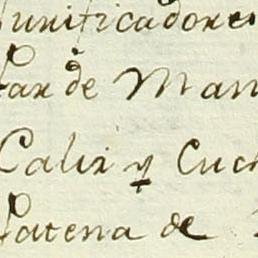 Purificadores
Par de Man
Caliz y Cuch
Patena de